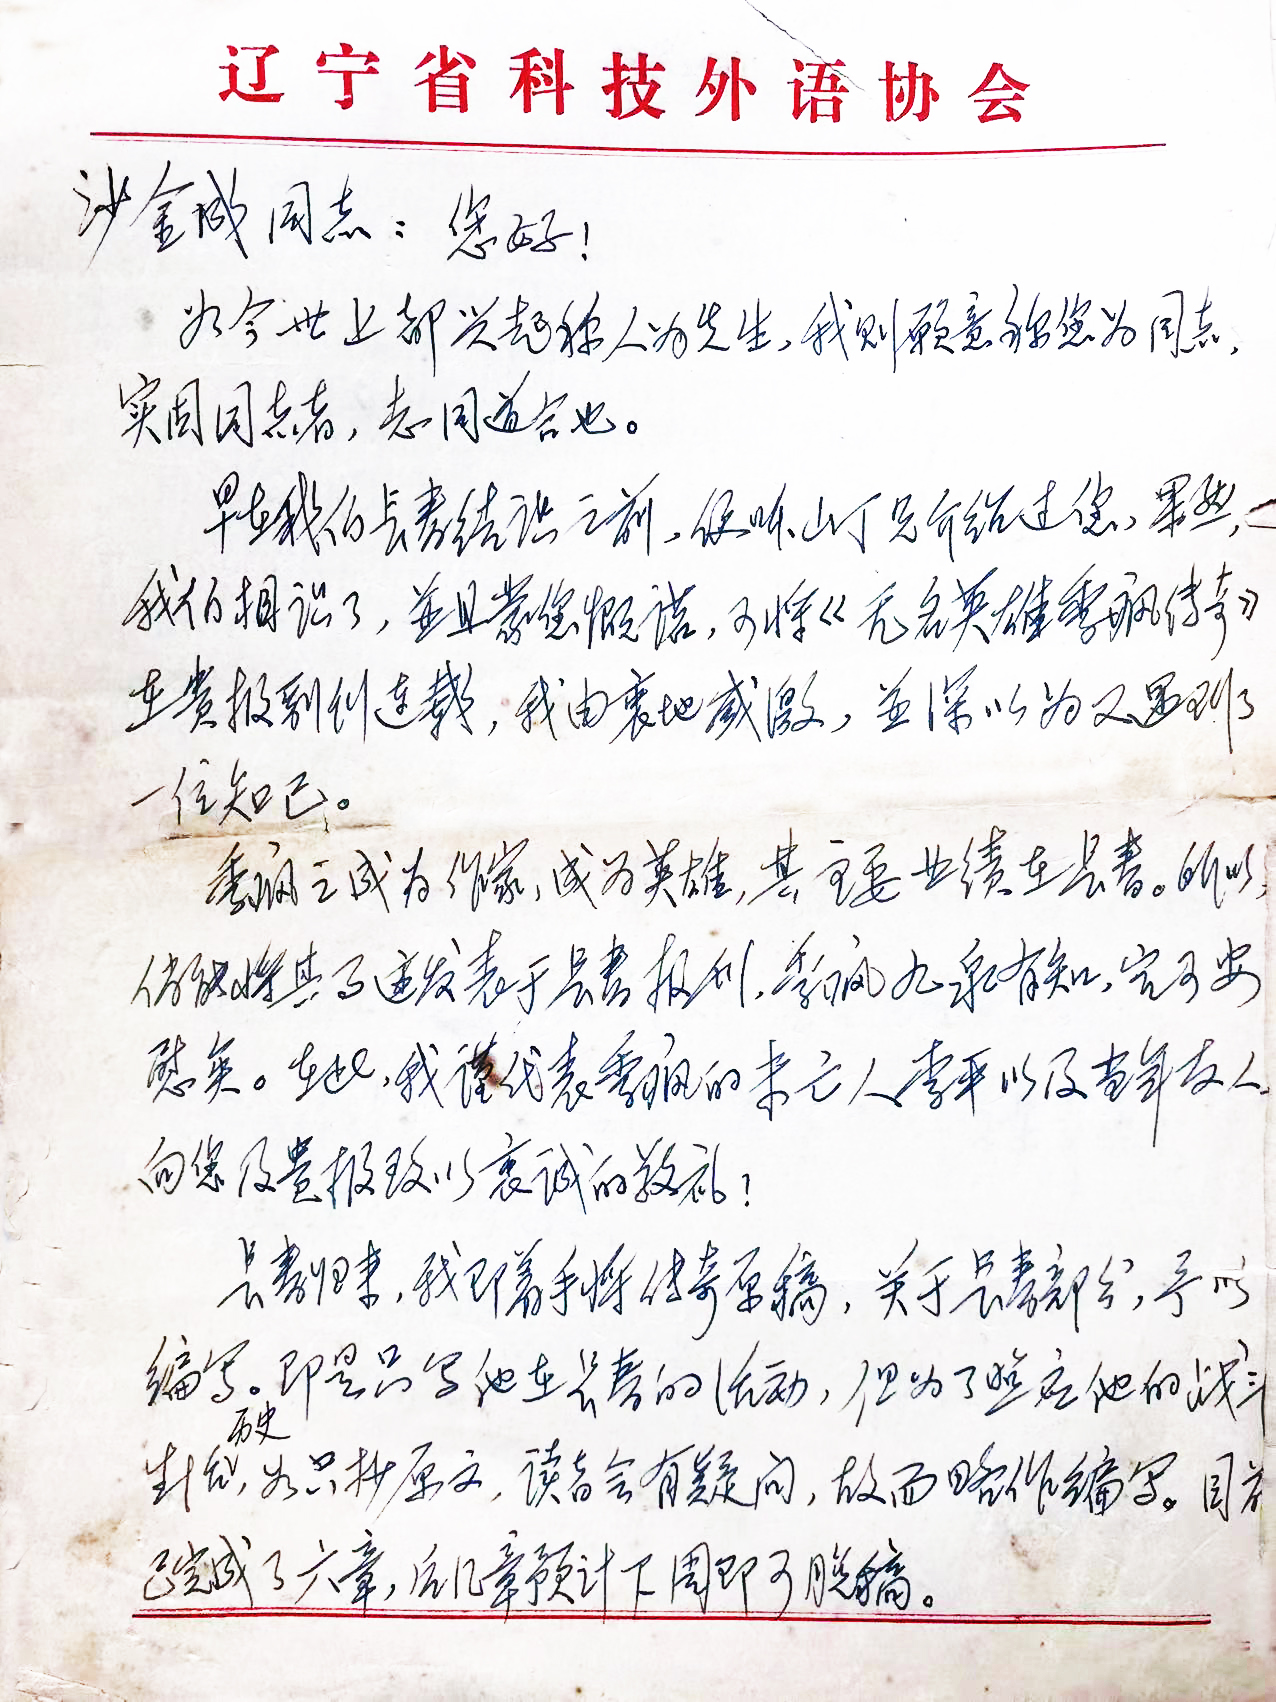 辽宁省科技外语协会
沙金成同志：您好！
如今世上都兴起称人为先生，我则愿意称您为同志，
实因同志者，志同道合也。
早在我们长春结识之前，便听山丁兄介绍过您，果然，一
我们相识了，并且蒙您慨诺，可将《无名英雄季疯传奇》
在贵报副刊连载，我由衷地感激，并深以为又遇到了
一位知己。
季疯之成为作家，成为英雄，其主要业绩在长春。所以，
倘能将其事迹发表于长春报刊，季疯九泉有知，定可安
慰矣。在此，我谨代表季疯的未亡人李平以及当年友人，
向您及贵报致以衷诚的敬礼！
长春归来，我即着手将传奇原稿，关于长春部分，予以
编写。即是只写他在长春的活动，但为了照应他的战斗
历史
，如只抄原文，读者会有疑问，故而略作编写。目前
已完成了六章，后几章预计下周即可脱稿。